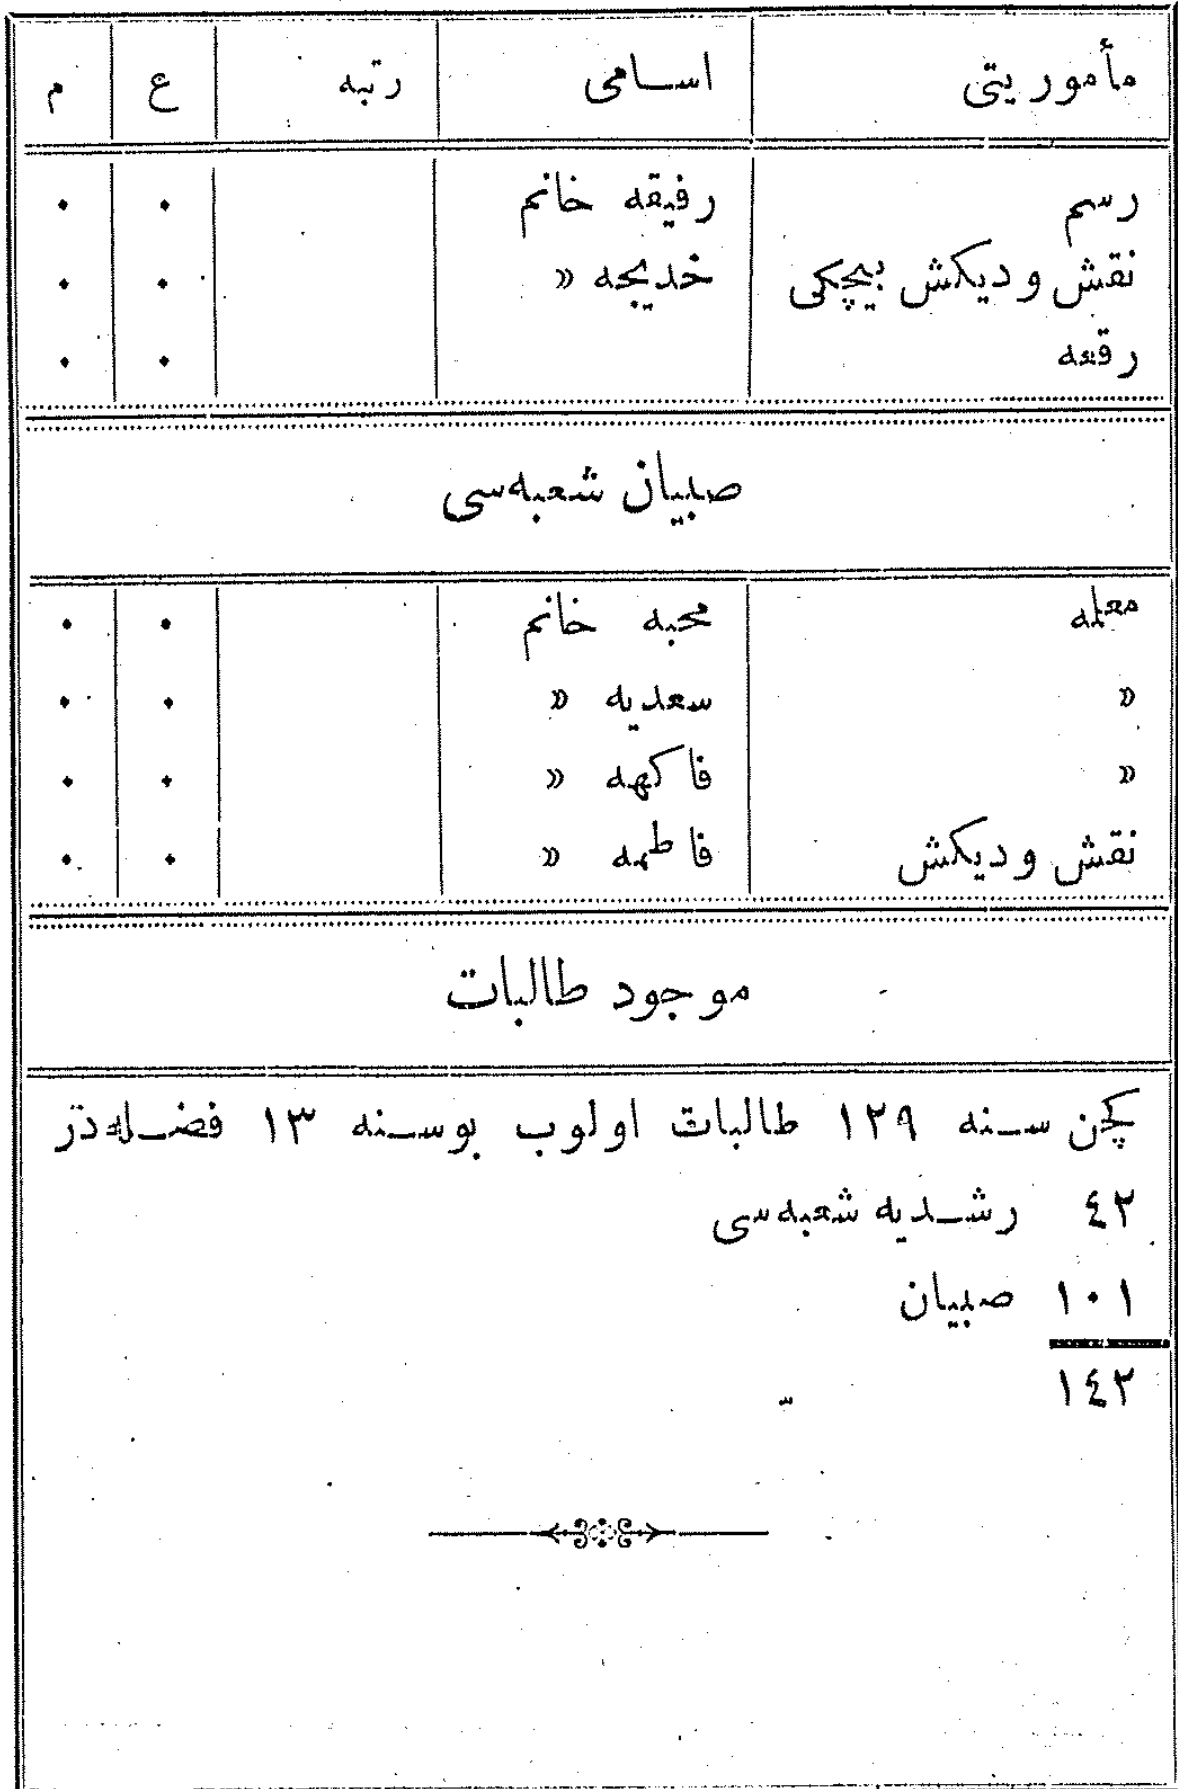 مأموریتی اسـامی رتبه ع م
رسم رفیقه خانم ۰ ۰
نقش ودیکش بیچکی خدیجه « ۰ ۰
رقعه ۰ ۰
صبیان شعبه‌سی
معلمه محبه خانم ۰ ۰
« سعدیه « ۰ ۰
« فاكهه « ۰ ۰
نقش ودیکش فاطمه « ۰ ۰
موجود طالبات
کچن سـنه ١٢٩ طالبات اولوب بوسـنه ١٣ فضـله‌در
٤٢ رشـدیه شعبه‌سی
١٠١ صبیان
١٤٢